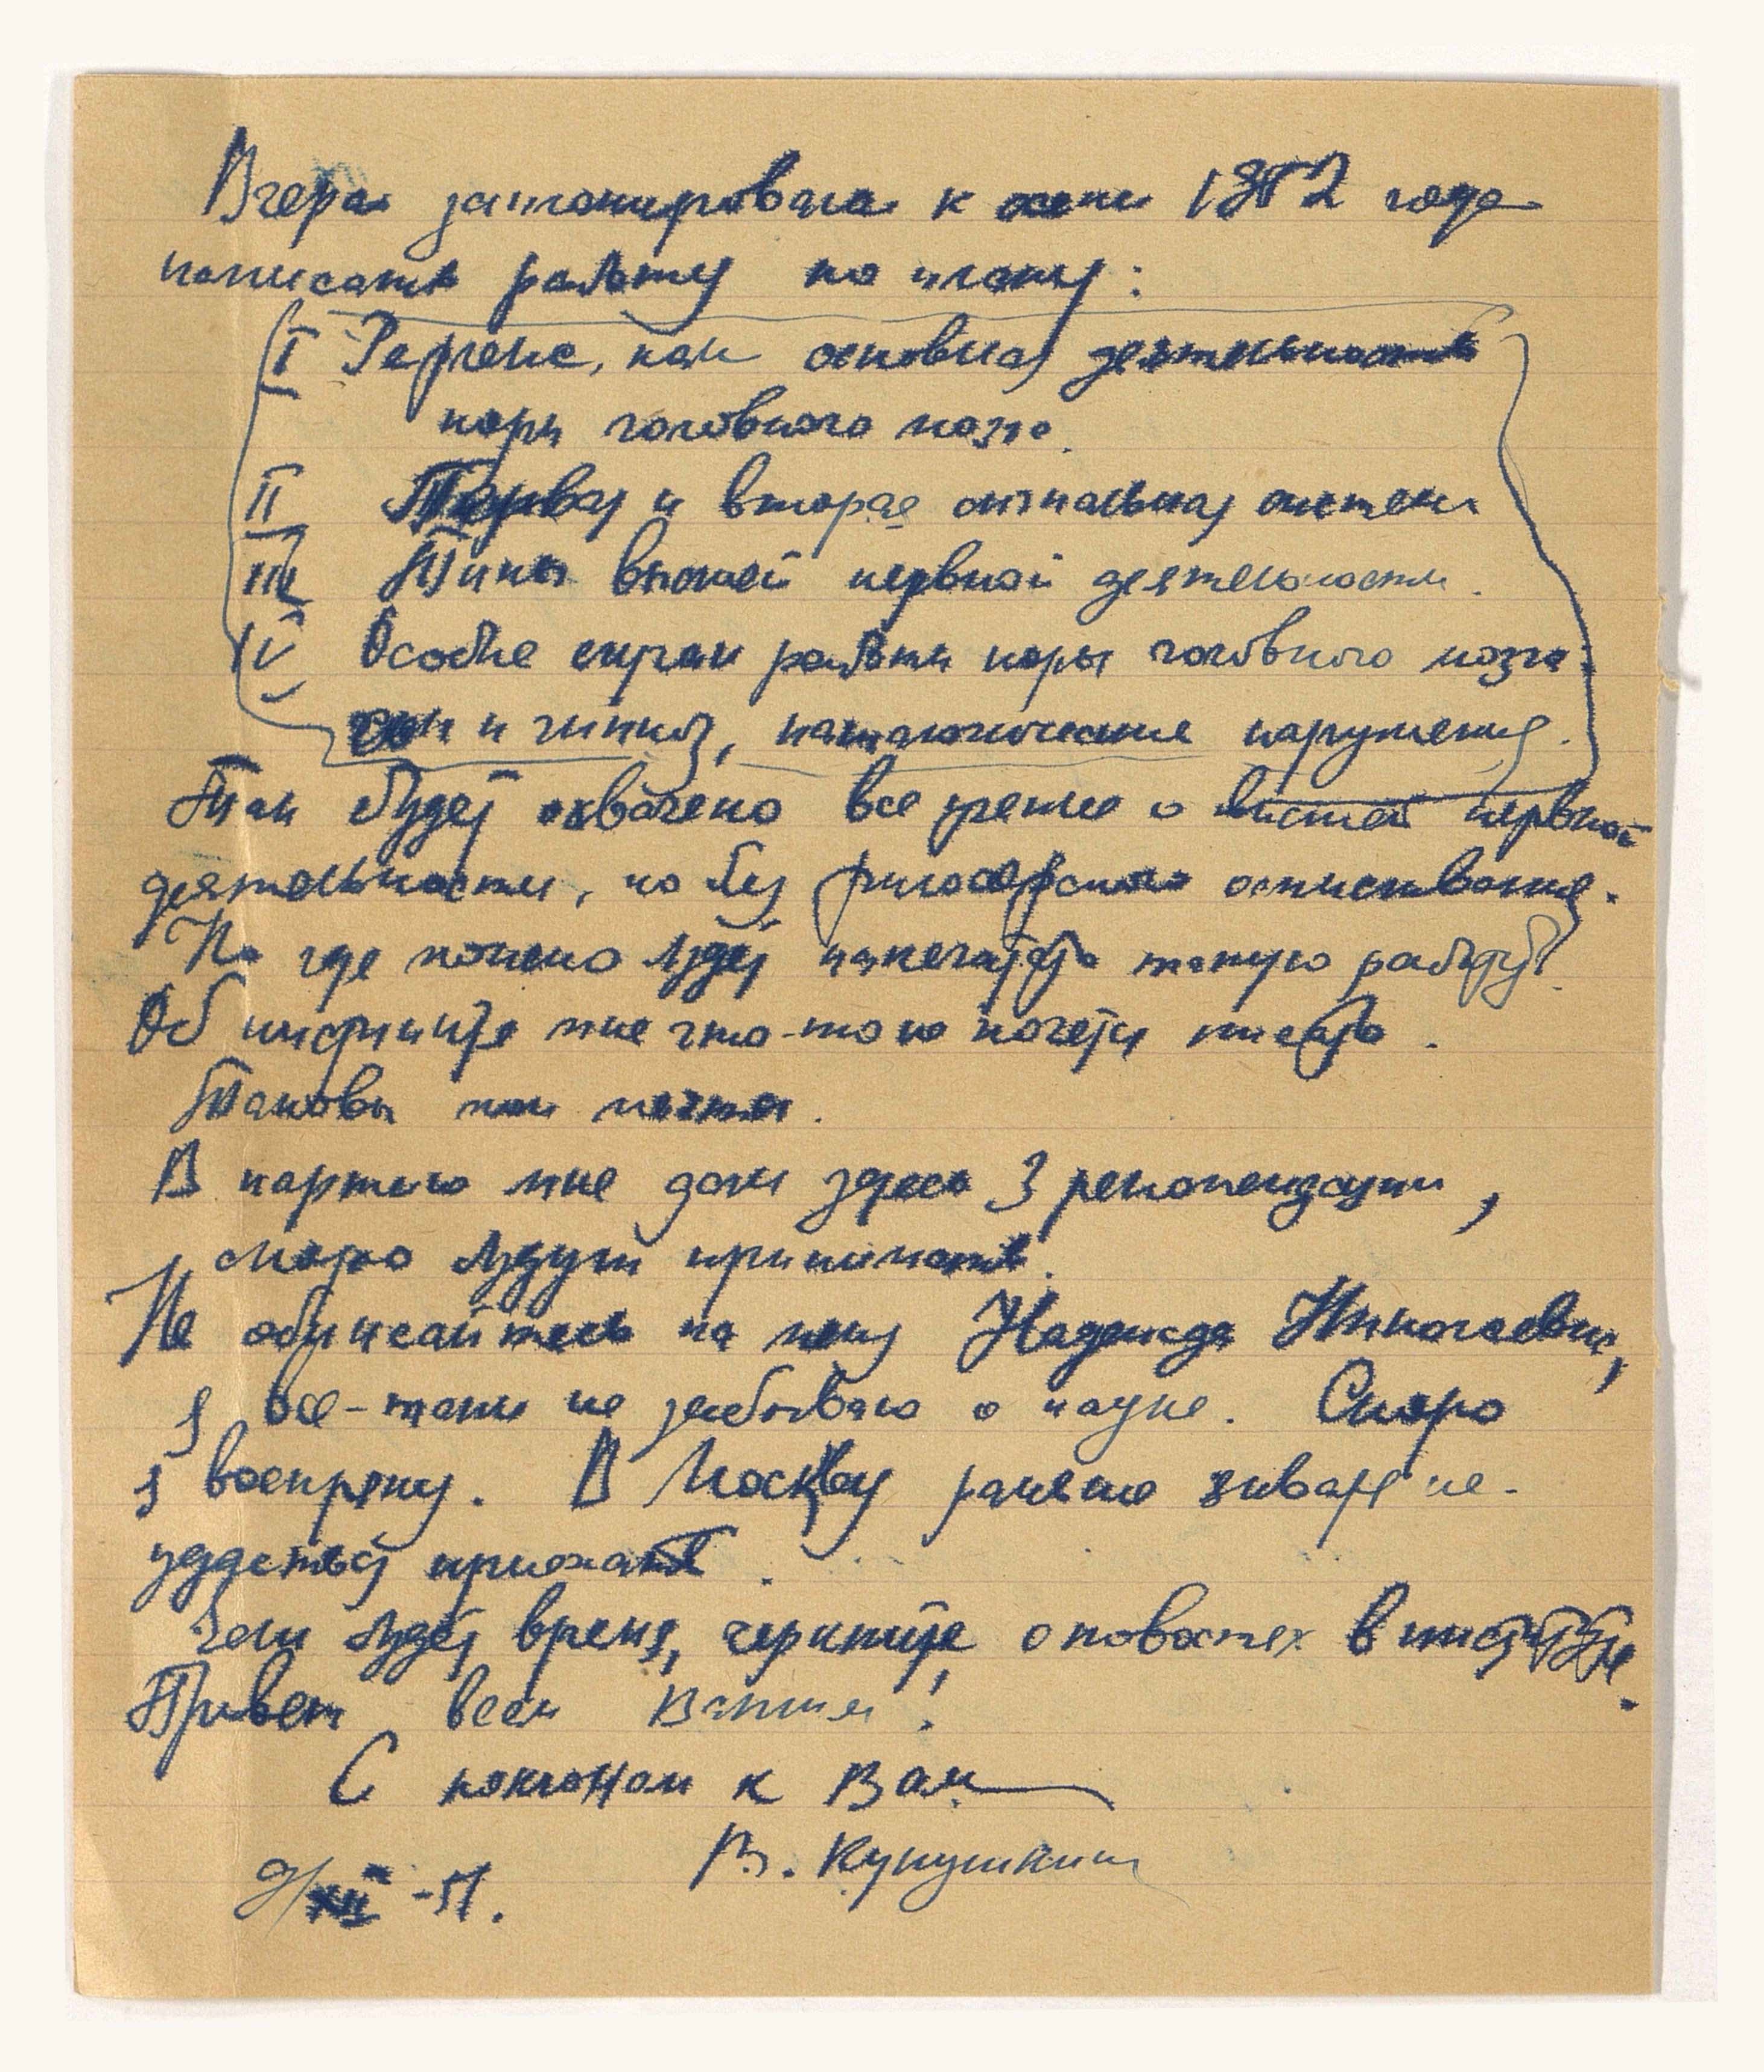 Вчера запланировала к осени 1952 года
написать работу по плану:
I Рефлекс, как основная деятельность
коры головного мозга.
II Первая и вторая сигнальная система
III Типы высшей нервной деятельности.
IV Особые случаи работы коры головного мозга:
сон и гипноз, патологические нарушения.
Так будет охвачено все учение о высшей нервной
деятельности, но без философского
Но где можно будет напечатать такую работу?
Об институте мне что-то не хочется писать.
Таковы мои мечты.
В партию мне дали здесь 3 рекомендации,
скоро будут принимать.
Не обижайтесь на меня Надежда Николаевна,
я все-таки не забываю о науке. Скоро
я воспряну. В Москву раньше января не
удастся приехать.
Если будет время, черкните о новостях в институте.
Привет всем Вашим!
С поклоном к Вам
В. Кукушкина
9/XII -51.